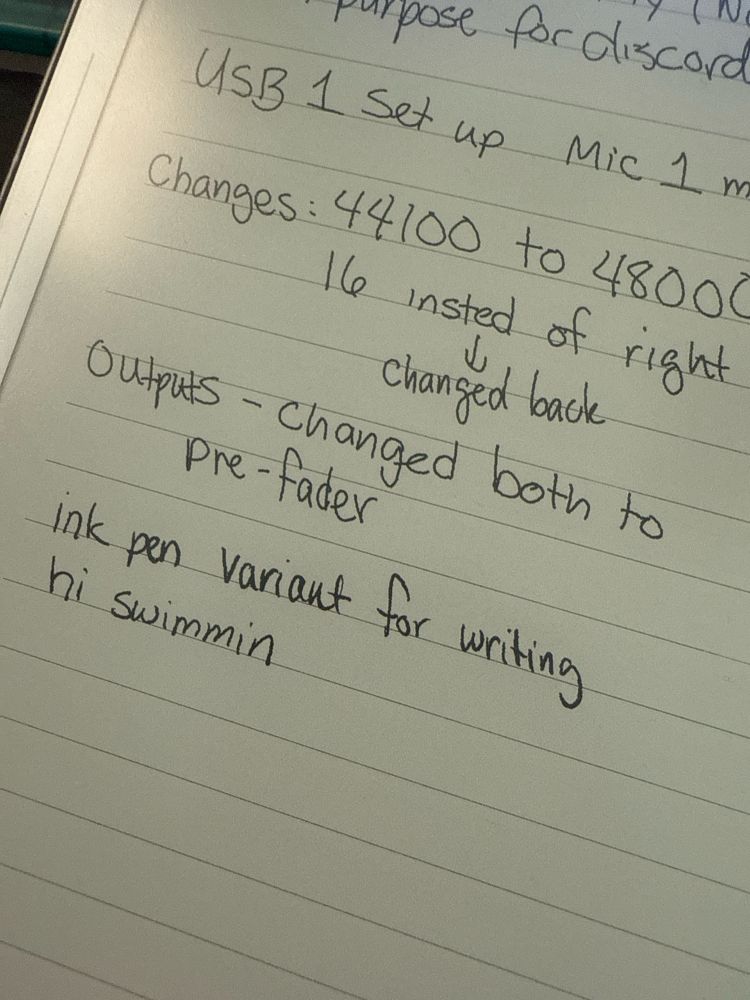 purpose for discord
USB 1 Set up Mic 1
Changes: 44100 to 48000
16 insted of right
↓
changed back
Outputs - changed both to
pre-fader
ink pen variant for writing
hi swimmin